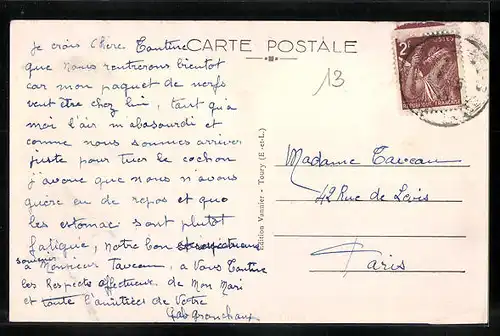 CARTE POSTALE
Je crois Chère Tantine
que nous rentrerons bientôt
car mon paquet de nerfs
veut être chez lui, tant qu'à
moi l'air m'abasourdi et
comme nous sommes arriver
juste pour tuer le cochon
j'avoue que nous n'avons
guère eu de repos et que
les estomac sont plutôt
fatigué, notre bon
souvenir
à Monsieur Taveau, a Vous Tantine
les Respects affectueux de Mon Mari
et toute l'amitiées de Votre
13
2F
RÉPUBLIQUE FRANÇAISE
Edition Vannier - Toury (E.-et-L.)
Madame Taveau
42 Rue de Lévis
Paris